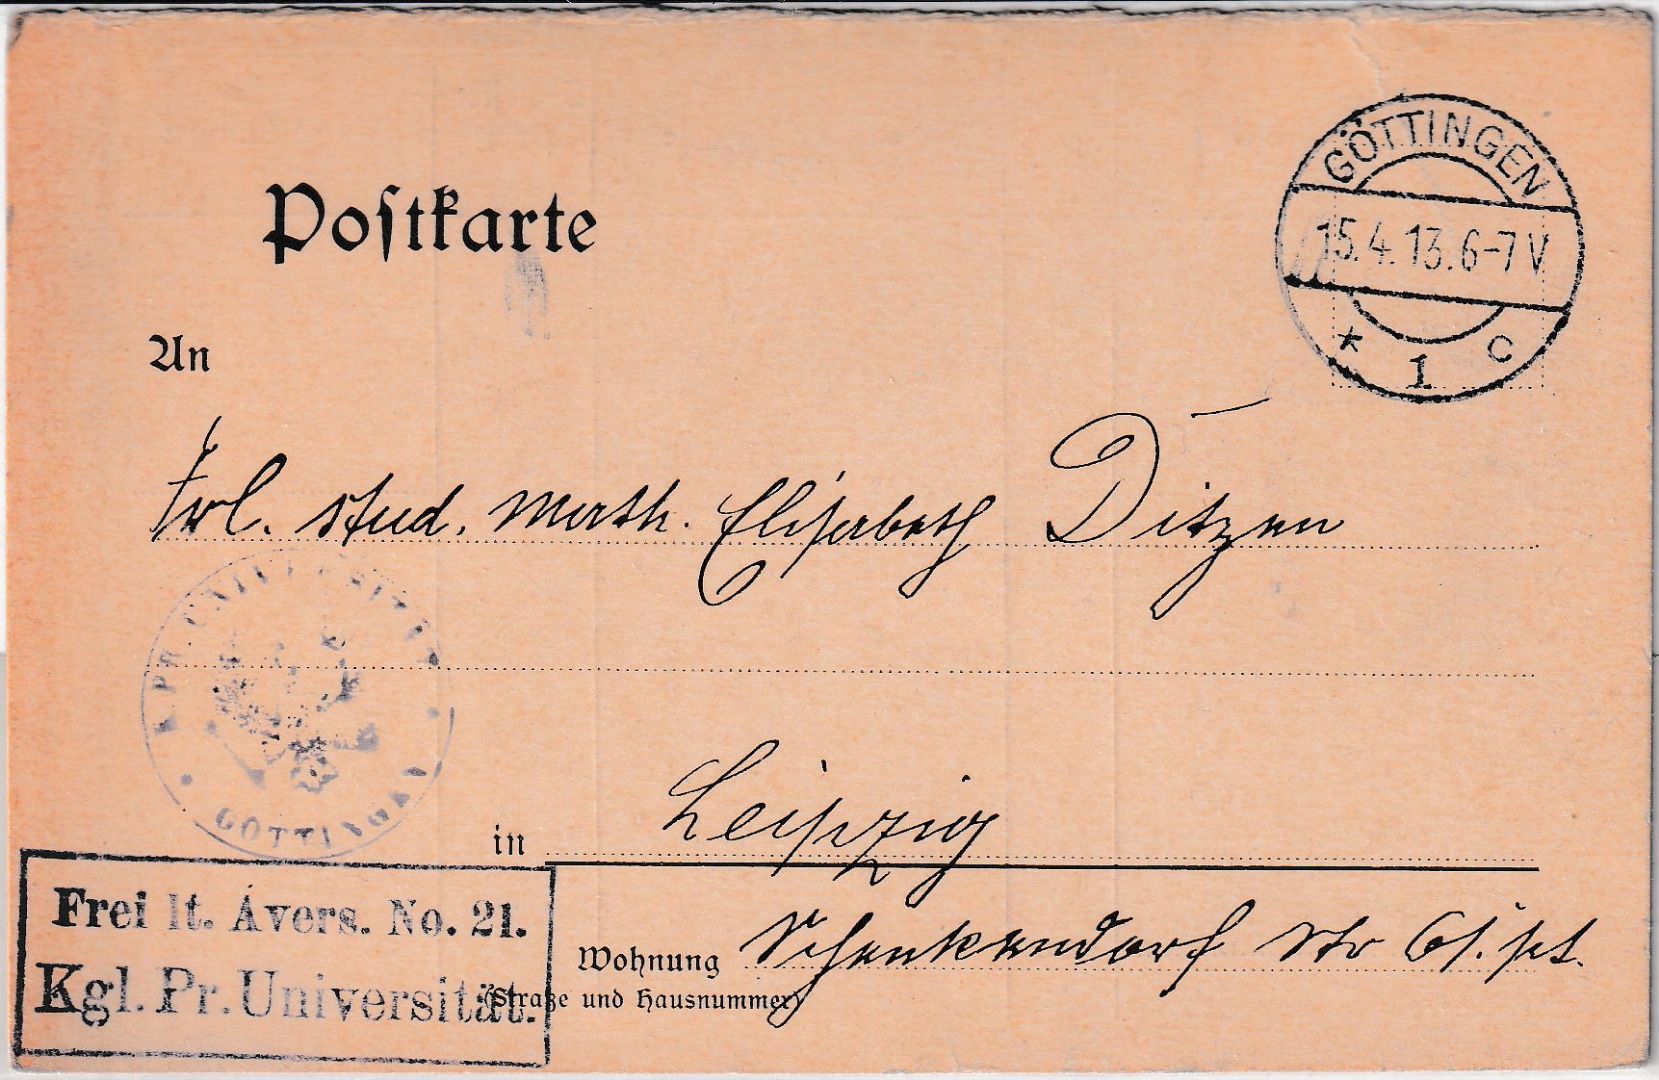 Postkarte
GÖTTINGEN
15.4.13.6-7 V
* 1 c
An
Frl. stud. math. Elisabeth Ditzen
K. PR. UNIVERSITÄT
GÖTTINGEN
in Leipzig
Frei lt. Avers. No. 21.
Kgl. Pr. Universität.
Wohnung Schenkendorf Str 61. pt.
(Straße und Hausnummer)